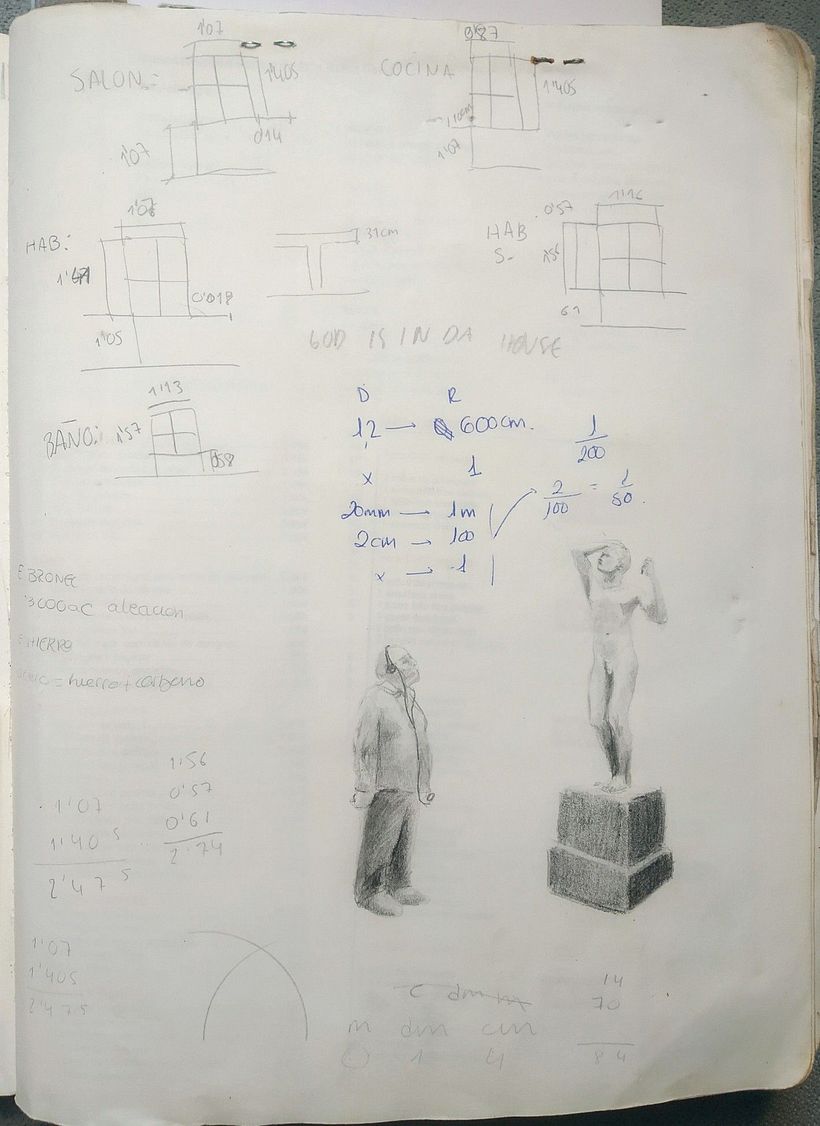 1'07
SALON:
1'405
0'14
1'07
0'87
COCINA
1'405
1'07
HAB:
1'05
0'018
31cm
HAB
S-
0'57
1'16
61
GOD IS IN DA HOUSE
1'13
BAÑO:
1'57
0'58
D R
1,2 → 600cm.
x 1
20mm — 1m
2cm → 100
x → 1
1/200
2/100 = 1/50.
E BRONCE
3000aC aleacion
E HIERRO
= hierro + carbono
1'56
0'57
0'61
2'74
1'07
1'405
2'475
1'07
1'405
2'475
c dm m
m dm cm
0 1 4
14
70
84